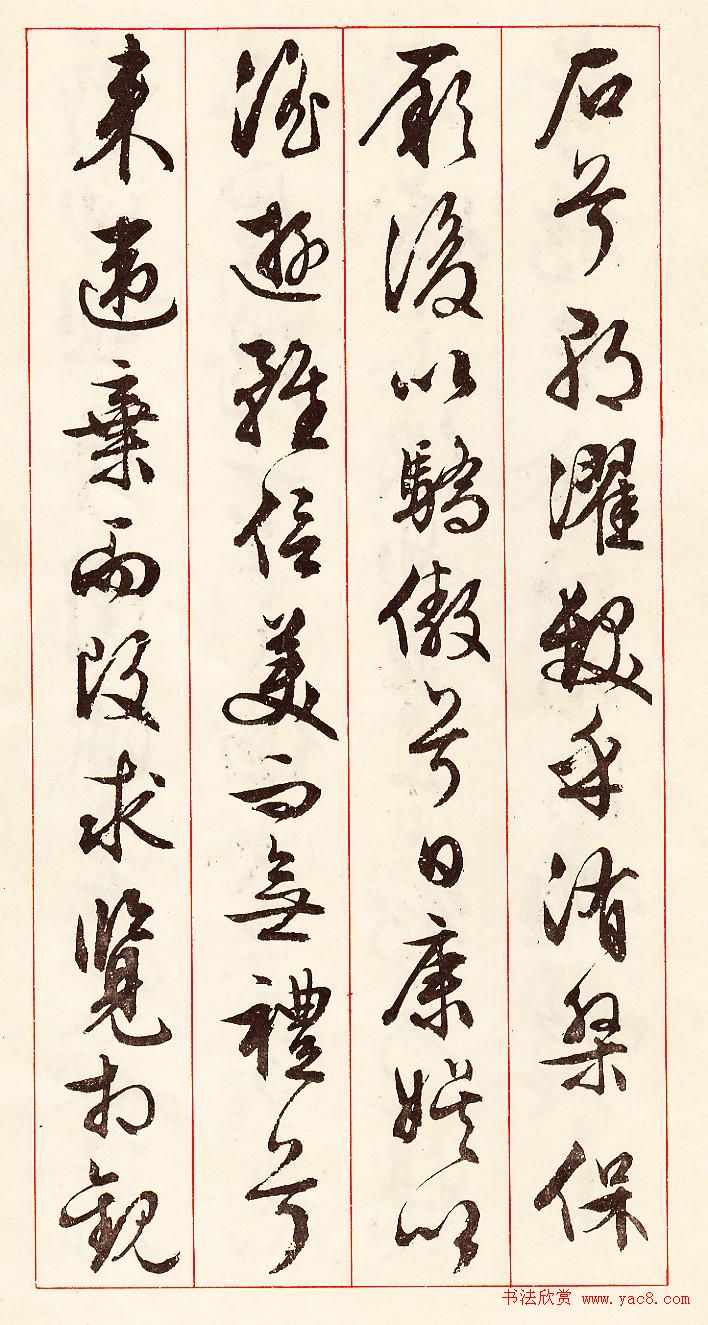 石兮朝濯髮乎洧槃保
厥後以驕傲兮日康娛以
淫遊雖信美而無禮兮
來違棄而改求覽相觀
书法欣赏 www.yac8.com